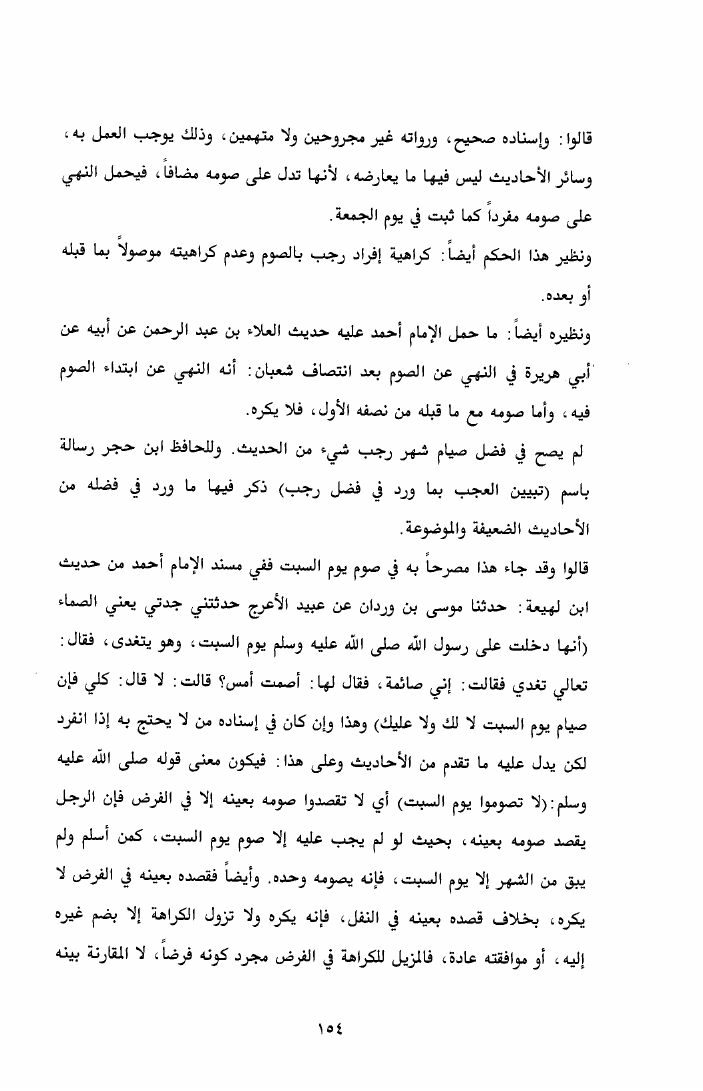 قالوا: وإسناده صحيح، ورواته غير مجروحين ولا متهمين، وذلك يوجب العمل به،
وسائر الأحاديث ليس فيها ما يعارضه، لأنها تدل على صومه مضافاً، فيحمل النهي
على صومه مفرداً كما ثبت في يوم الجمعة.
ونظير هذا الحكم أيضاً: كراهية إفراد رجب بالصوم وعدم كراهيته موصولاً بما قبله
أو بعده.
ونظيره أيضاً: ما حمل الإمام أحمد عليه حديث العلاء بن عبد الرحمن عن أبيه عن
أبي هريرة في النهي عن الصوم بعد انتصاف شعبان: أنه النهي عن ابتداء الصوم
فيه، وأما صومه مع ما قبله من نصفه الأول، فلا يكره.
لم يصح في فضل صيام شهر رجب شيء من الحديث. وللحافظ ابن حجر رسالة
باسم (تبيين العجب بما ورد في فضل رجب) ذكر فيها ما ورد في فضله من
الأحاديث الضعيفة والموضوعة.
قالوا وقد جاء هذا مصرحاً به في صوم يوم السبت ففي مسند الإمام أحمد من حديث
ابن لهيعة: حدثنا موسى بن وردان عن عبيد الأعرج حدثتني جدتي يعني الصماء
(أنها دخلت على رسول الله صلى الله عليه وسلم يوم السبت، وهو يتغدى، فقال:
تعالي تغدي فقالت: إني صائمة، فقال لها: أصمت أمس؟ قالت: لا قال: كلي فإن
صيام يوم السبت لا لك ولا عليك) وهذا وإن كان في إسناده من لا يحتج به إذا انفرد
لكن يدل عليه ما تقدم من الأحاديث وعلى هذا: فيكون معنى قوله صلى الله عليه
وسلم:(لا تصوموا يوم السبت) أي لا تقصدوا صومه بعينه إلا في الفرض فإن الرجل
يقصد صومه بعينه، بحيث لو لم يجب عليه إلا صوم يوم السبت، كمن أسلم ولم
يبق من الشهر إلا يوم السبت، فإنه يصومه وحده. وأيضاً فقصده بعينه في الفرض لا
يكره، بخلاف قصده بعينه في النفل، فإنه يكره ولا تزول الكراهة إلا بضم غيره
إليه، أو موافقته عادة، فالمزيل للكراهة في الفرض مجرد كونه فرضاً، لا المقارنة بينه
١٥٤